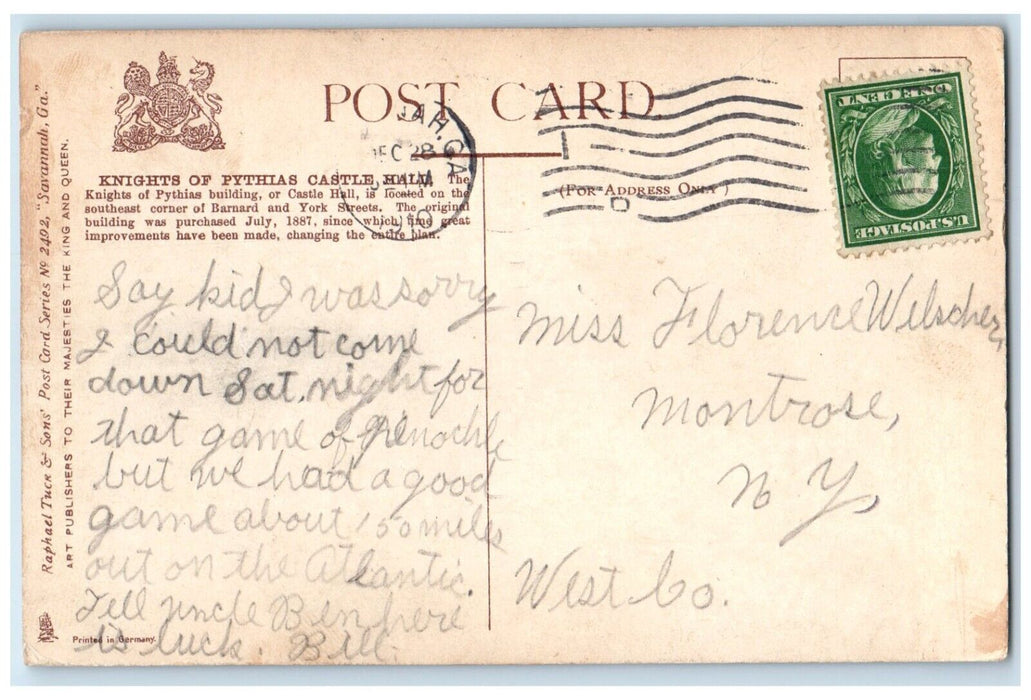 POST CARD
AH, GA
DEC 28
D
(For Address Only)
ONE CENT
U.S. POSTAGE
KNIGHTS OF PYTHIAS CASTLE HALL. The
Knights of Pythias building, or Castle Hall, is located on the
southeast corner of Barnard and York Streets. The original
building was purchased July, 1887, since which time great
improvements have been made, changing the entire plan.
Raphael Tuck & Sons' Post Card Series No 2492, "Savannah, Ga."
ART PUBLISHERS TO THEIR MAJESTIES THE KING AND QUEEN.
Say kid I was sorry
I could not come
down Sat. night for
that game of penochle
but we had a good
game about 150 miles
out on the Atlantic.
Tell Uncle Ben here
is luck. Bill.
Printed in Germany.
Miss Florence Welscher,
Montrose,
N Y,
West Co.